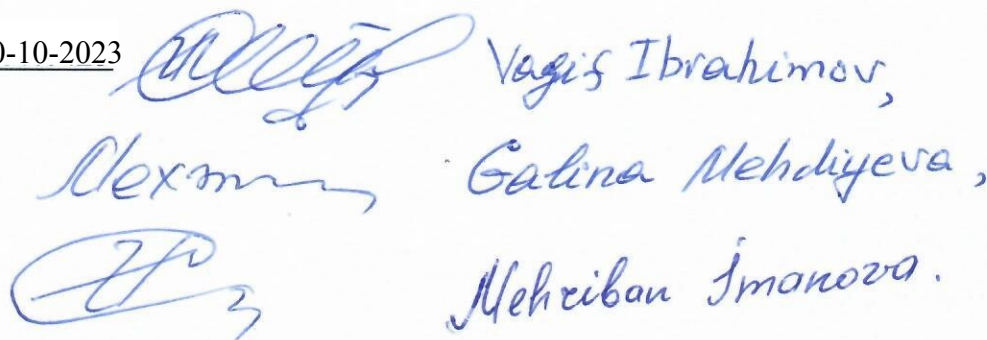 0-10-2023 Vagif Ibrahimov,
Galina Mehdiyeva,
Mehriban İmanova.